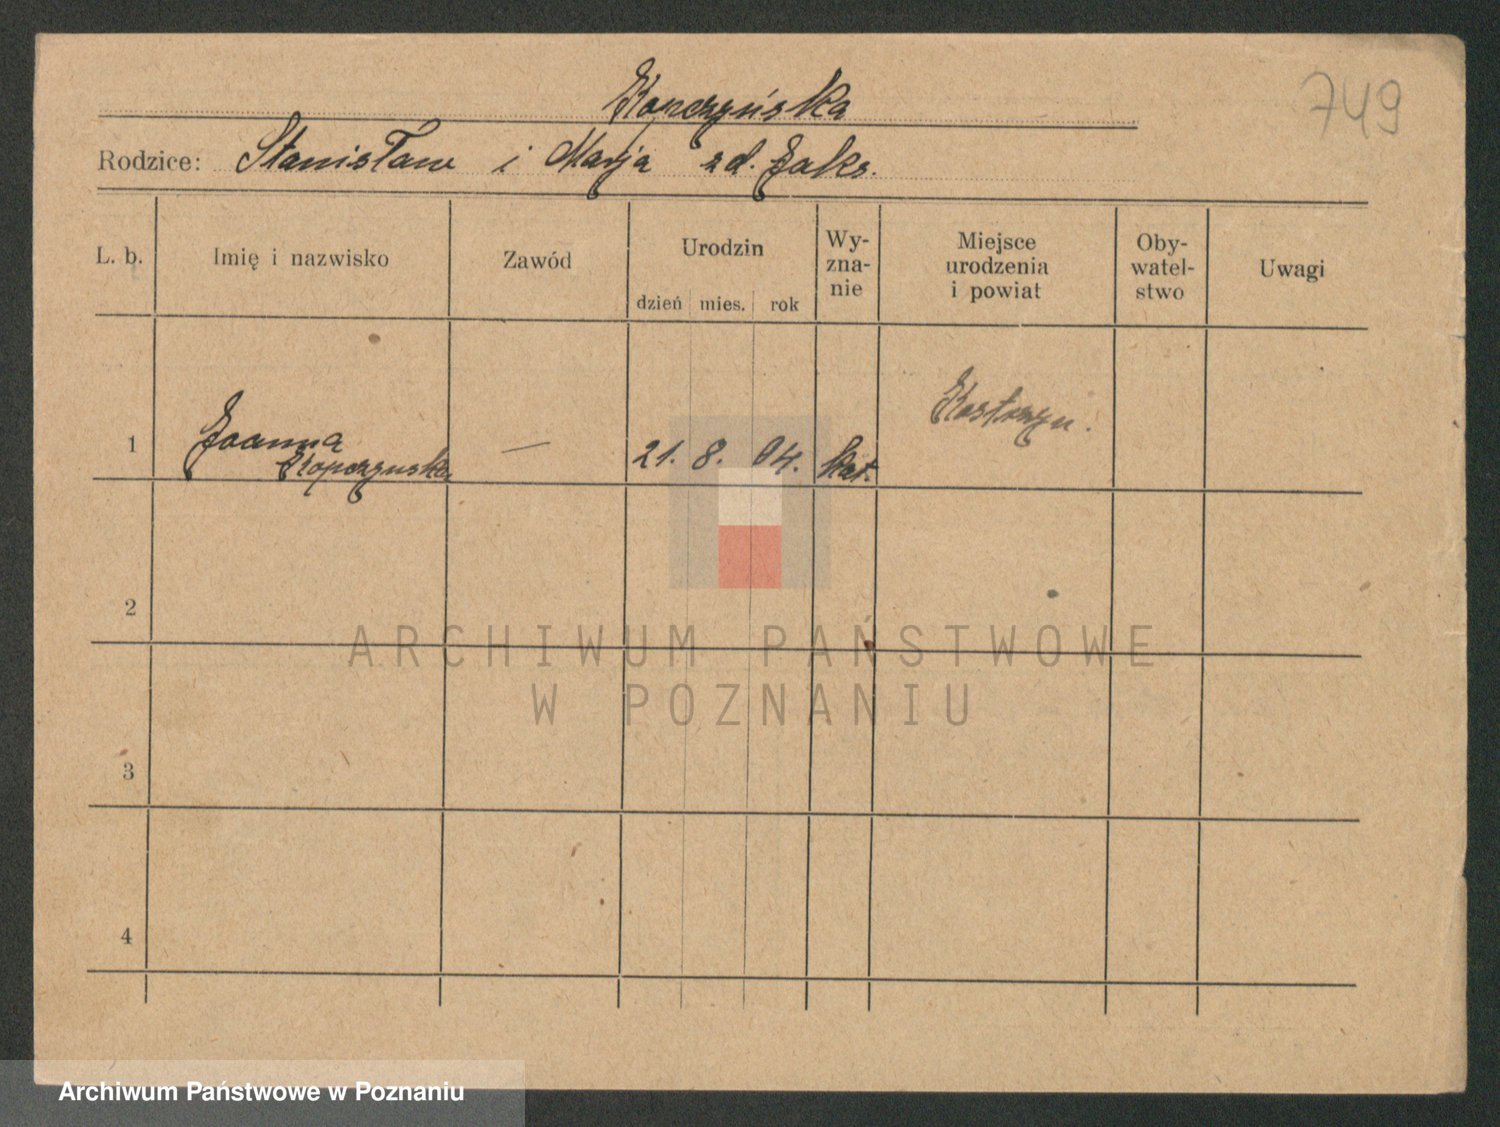 749
Kopczyńska
Rodzice: Stanisław i Marja zd. Zaks.
L. b. Imię i nazwisko Zawód Urodzin Wy-zna-nie Miejsce urodzenia i powiat Oby-watel-stwo Uwagi
dzień mies. rok
1 Joanna Kopczynska — 21. 8. 04. kat. Kostrzyn.
2
3
4
ARCHIWUM PAŃSTWOWE
W POZNANIU
Archiwum Państwowe w Poznaniu